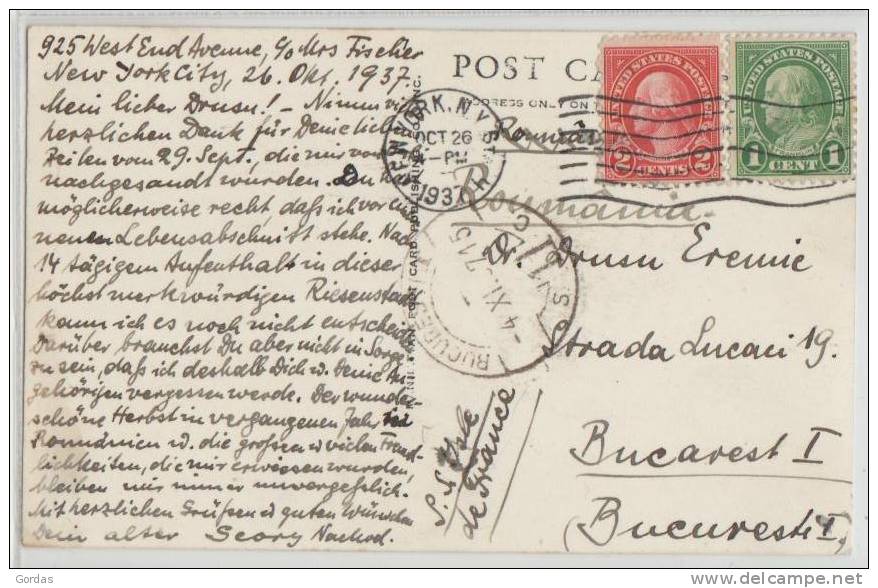 925 West End Avenue, c/o Mrs Fischer
New York City, 26. Okt. 1937.
Mein lieber Drusu! – Nimm
herzlichen Dank für Deine
Zeilen vom 29. Sept., die mir
nachgesandt wurden. Du
möglicherweise recht, daß ich vor
neuen Lebensabschnitt stehe. Nach
14 tägigem Aufenthalt in dieser
höchst merkwürdigen Riesenstadt
kann ich es noch nicht
Darüber brauchst Du aber nicht in Sorge
zu sein, daß ich deshalb Dich u. Deine An-
gehörigen vergessen werde. Der wunder-
schöne Herbst in vergangenen Jahr in
Roumänien u. die großen u vielen Freund-
lichkeiten, die mir erwiesen wurden,
bleiben mir immer unvergeßlich.
Mit herzlichen Grüßen u guten Wünschen
Dein alter Georg Nachod.
POST CA
ADDRESS ONLY ON
NEW YORK, N.Y.
OCT 26
4-PM
1937
UNITED STATES POSTAGE
2 CENTS 2
UNITED STATES POSTAGE
1 CENT 1
Roumania
Dr. Drusu Eremie
Strada Lucaci 19.
Bucarest I
(Bucuresti I)
S.S. Isle
de France
BUCURESTI
4 XI. 37 15
POST CARD PUBLISHING
INC.
Gordas
www.delcampe.net